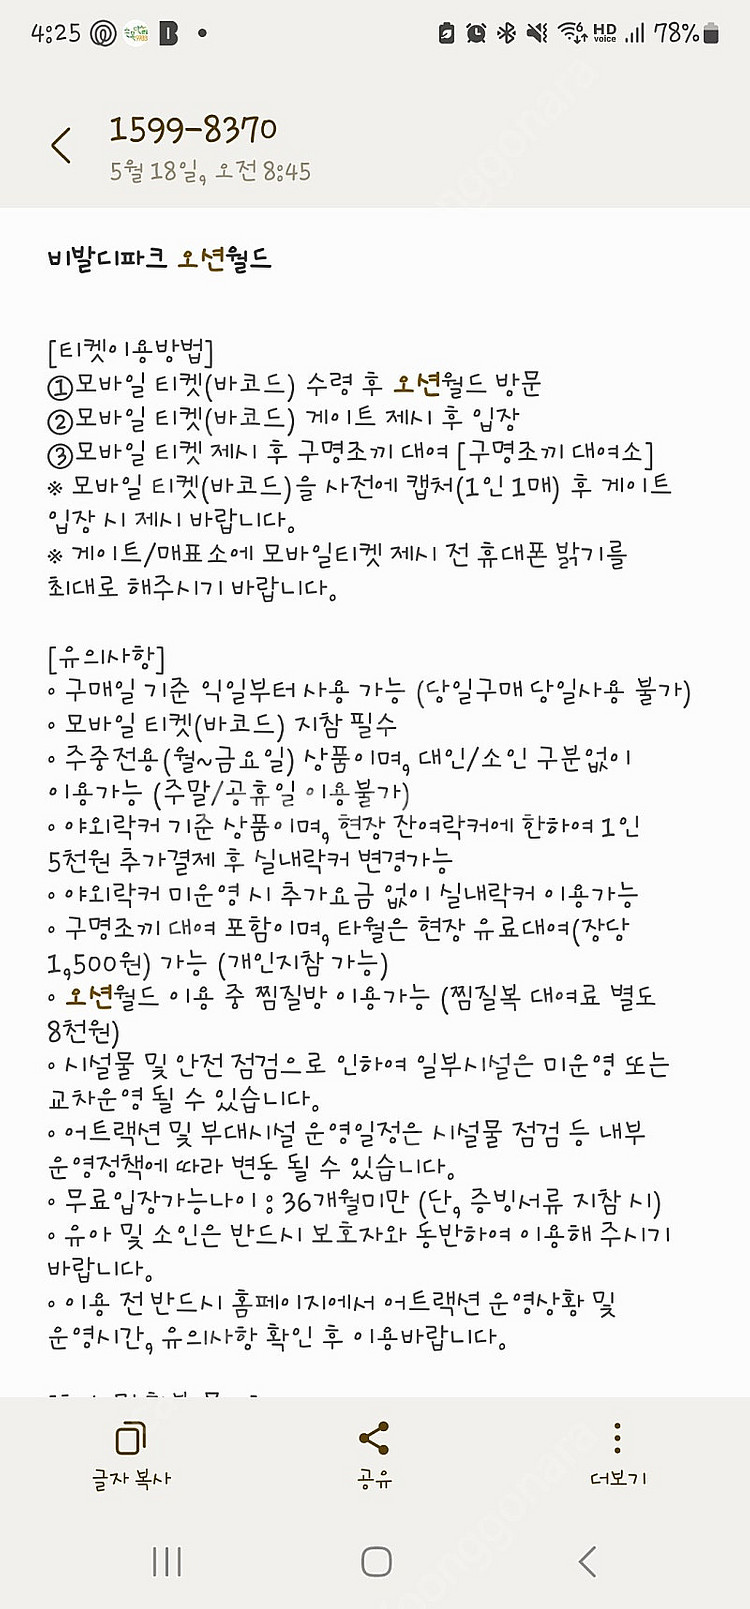 4:25
HD voice
78%
1599-8370
5월 18일, 오전 8:45
비발디파크 오션월드
[티켓이용방법]
①모바일 티켓(바코드) 수령 후 오션월드 방문
②모바일 티켓(바코드) 게이트 제시 후 입장
③모바일 티켓 제시 후 구명조끼 대여 [구명조끼 대여소]
※ 모바일 티켓(바코드)을 사전에 캡처(1인 1매) 후 게이트
입장 시 제시 바랍니다.
※ 게이트/매표소에 모바일티켓 제시 전 휴대폰 밝기를
최대로 해주시기 바랍니다.
[유의사항]
• 구매일 기준 익일부터 사용 가능 (당일구매 당일사용 불가)
• 모바일 티켓(바코드) 지참 필수
• 주중전용(월~금요일) 상품이며, 대인/소인 구분없이
이용가능 (주말/공휴일 이용불가)
• 야외락커 기준 상품이며, 현장 잔여락커에 한하여 1인
5천원 추가결제 후 실내락커 변경가능
• 야외락커 미운영 시 추가요금 없이 실내락커 이용가능
• 구명조끼 대여 포함이며, 타월은 현장 유료대여(장당
1,500원) 가능 (개인지참 가능)
• 오션월드 이용 중 찜질방 이용가능 (찜질복 대여료 별도
8천원)
• 시설물 및 안전 점검으로 인하여 일부시설은 미운영 또는
교차운영 될 수 있습니다.
• 어트랙션 및 부대시설 운영일정은 시설물 점검 등 내부
운영정책에 따라 변동 될 수 있습니다.
• 무료입장가능나이 : 36개월미만 (단, 증빙서류 지참 시)
• 유아 및 소인은 반드시 보호자와 동반하여 이용해 주시기
바랍니다.
• 이용 전 반드시 홈페이지에서 어트랙션 운영상황 및
운영시간, 유의사항 확인 후 이용바랍니다.
글자 복사
공유
더보기